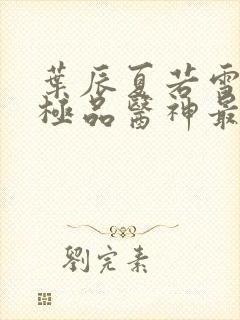 葉辰夏若雪
極品醫神最
劉完素